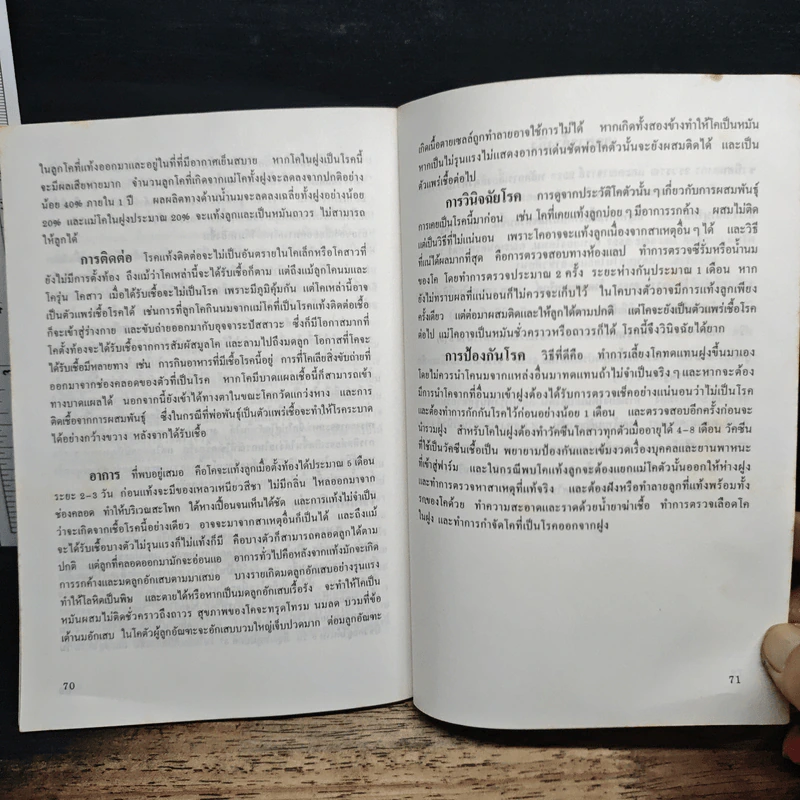 ในลูกโคที่แท้งออกมาและอยู่ในที่ที่มีอากาศเย็นสบาย หากโคในฝูงเป็นโรคนี้
จะมีผลเสียหายมาก จำนวนลูกโคที่เกิดจากแม่โคทั้งฝูงจะลดลงจากปกติอย่าง
น้อย 40% ภายใน 1 ปี ผลผลิตทางด้านน้ำนมจะลดลงเฉลี่ยทั้งฝูงอย่างน้อย
20% และแม่โคในฝูงประมาณ 20% จะแท้งลูกและเป็นหมันถาวร ไม่สามารถ
ให้ลูกได้
การติดต่อ โรคแท้งติดต่อจะไม่เป็นอันตรายในโคเล็กหรือโคสาวที่
ยังไม่มีการตั้งท้อง ถึงแม้ว่าโคเหล่านี้จะได้รับเชื้อก็ตาม แต่ถึงแม้ลูกโคนมและ
โครุ่น โคสาว เมื่อได้รับเชื้อจะไม่เป็นโรค เพราะมีภูมิคุ้มกัน แต่โคเหล่านี้อาจ
เป็นตัวแพร่เชื้อโรคได้ เช่นการที่ลูกโคกินนมจากแม่โคที่เป็นโรคแท้งติดต่อเชื้อ
ก็จะเข้าสู่ร่างกาย และขับถ่ายออกมากับอุจจาระปัสสาวะ ซึ่งก็มีโอกาสมากที่
โคตั้งท้องจะได้รับเชื้อจากการสัมผัสมูลโค และลามไปถึงมดลูก โอกาสที่โคจะ
เป็นโรคมีหลายทาง เช่น การกินอาหารที่มีเชื้อโรคนี้อยู่ การที่โคเลียสิ่งขับถ่ายที่
ออกมาจากช่องคลอดของตัวที่เป็นโรค หากโคมีบาดแผลเชื้อนี้ก็สามารถเข้า
ทางบาดแผลได้ นอกจากนี้ยังเข้าได้ทางตาในขณะโคกวัดแกว่งหาง และการ
ติดเชื้อจากการผสมพันธุ์ ซึ่งในกรณีที่พ่อพันธุ์เป็นตัวแพร่เชื้อจะทำให้โรคระบาด
ได้อย่างกว้างขวาง หลังจากได้รับเชื้อ
อาการ ที่พบอยู่เสมอ คือโคจะแท้งลูกเมื่อตั้งท้องได้ประมาณ 5 เดือน
ระยะ 2-3 วัน ก่อนแท้งจะมีของเหลวเหนียวสีชา ไม่มีกลิ่น ไหลออกมาจาก
ช่องคลอด ทำให้บริเวณสะโพก ใต้หางเปื้อนจนเห็นได้ชัด และการแท้งไม่จำเป็น
ว่าจะเกิดจากเชื้อโรคนี้อย่างเดียว อาจจะมาจากสาเหตุอื่นก็เป็นได้ และถึงแม้
จะได้รับเชื้อบางตัวไม่รุนแรงก็ไม่แท้งก็มี คือบางตัวก็สามารถคลอดลูกได้ตาม
ปกติ แต่ลูกที่คลอดออกมามักจะอ่อนแอ อาการทั่วไปคือหลังจากแท้งมักจะเกิด
การรกค้างและมดลูกอักเสบตามมาเสมอ บางรายเกิดมดลูกอักเสบอย่างรุนแรง
ทำให้โลหิตเป็นพิษ และตายได้หรือหากเป็นมดลูกอักเสบเรื้อรัง จะทำให้โคเป็น
หมันผสมไม่ติดชั่วคราวถึงถาวร สุขภาพของโคจะทรุดโทรม นมลด บวมที่ข้อ
เต้านมอักเสบ ในโคตัวผู้ลูกอัณฑะจะอักเสบบวมใหญ่เจ็บปวดมาก ต่อมลูกอัณฑะ
70
เกิดเนื้อตายเซลล์ถูกทำลายอาจใช้การไม่ได้ หากเกิดทั้งสองข้างทำให้โคเป็นหมัน
หากเป็นไม่รุนแรงไม่แสดงอาการเด่นชัดพ่อโคตัวนั้นจะยังผสมติดได้ และเป็น
ตัวแพร่เชื้อต่อไป
การวินิจฉัยโรค การดูจากประวัติโคตัวนั้น ๆ เกี่ยวกับการผสมพันธุ์
การเคยเป็นโรคนี้มาก่อน เช่น โคที่เคยแท้งลูกบ่อย ๆ มีอาการรกค้าง ผสมไม่ติด
แต่เป็นวิธีที่ไม่แน่นอน เพราะโคอาจจะแท้งลูกเนื่องจากสาเหตุอื่น ๆ ได้ และวิธี
ที่แน่ได้ผลมากที่สุด คือการตรวจสอบทางห้องแลป ทำการตรวจซีรั่มหรือน้ำนม
ของโค โดยทำการตรวจประมาณ 2 ครั้ง ระยะห่างกันประมาณ 1 เดือน หาก
ยังไม่ทราบผลที่แน่นอนก็ไม่ควรจะเก็บไว้ ในโคบางตัวอาจมีการแท้งลูกเพียง
ครั้งเดียว แต่ต่อมาผสมติดและให้ลูกได้ตามปกติ แต่โคจะยังเป็นตัวแพร่เชื้อโรค
ต่อไป แม่โคอาจเป็นหมันชั่วคราวหรือถาวรก็ได้ โรคนี้จึงวินิจฉัยได้ยาก
การป้องกันโรค วิธีที่ดีคือ ทำการเลี้ยงโคทดแทนฝูงขึ้นมาเอง
โดยไม่ควรนำโคนมจากแหล่งอื่นมาทดแทนถ้าไม่จำเป็นจริง ๆ และหากจะต้อง
มีการนำโคจากที่อื่นมาเข้าฝูงต้องได้รับการตรวจเช็คอย่างแน่นอนว่าไม่เป็นโรค
และต้องทำการกักกันโรคไว้ก่อนอย่างน้อย 1 เดือน และตรวจสอบอีกครั้งก่อนจะ
นำรวมฝูง สำหรับโคในฝูงต้องทำวัคซีนโคสาวทุกตัวเมื่ออายุได้ 4-8 เดือน วัคซีน
ที่ใช้เป็นวัคซีนเชื้อเป็น พยายามป้องกันและเข้มงวดเรื่องบุคคลและยานพาหนะ
ที่เข้าสู่ฟาร์ม และในกรณีพบโคแท้งลูกจะต้องแยกแม่โคตัวนั้นออกให้ห่างฝูง
และทำการตรวจหาสาเหตุที่แท้จริง และต้องฝังหรือทำลายลูกที่แท้งพร้อมทั้ง
รกของโคด้วย ทำความสะอาดและราดด้วยน้ำยาฆ่าเชื้อ ทำการตรวจเลือดโค
ในฝูง และทำการกำจัดโคที่เป็นโรคออกจากฝูง
71